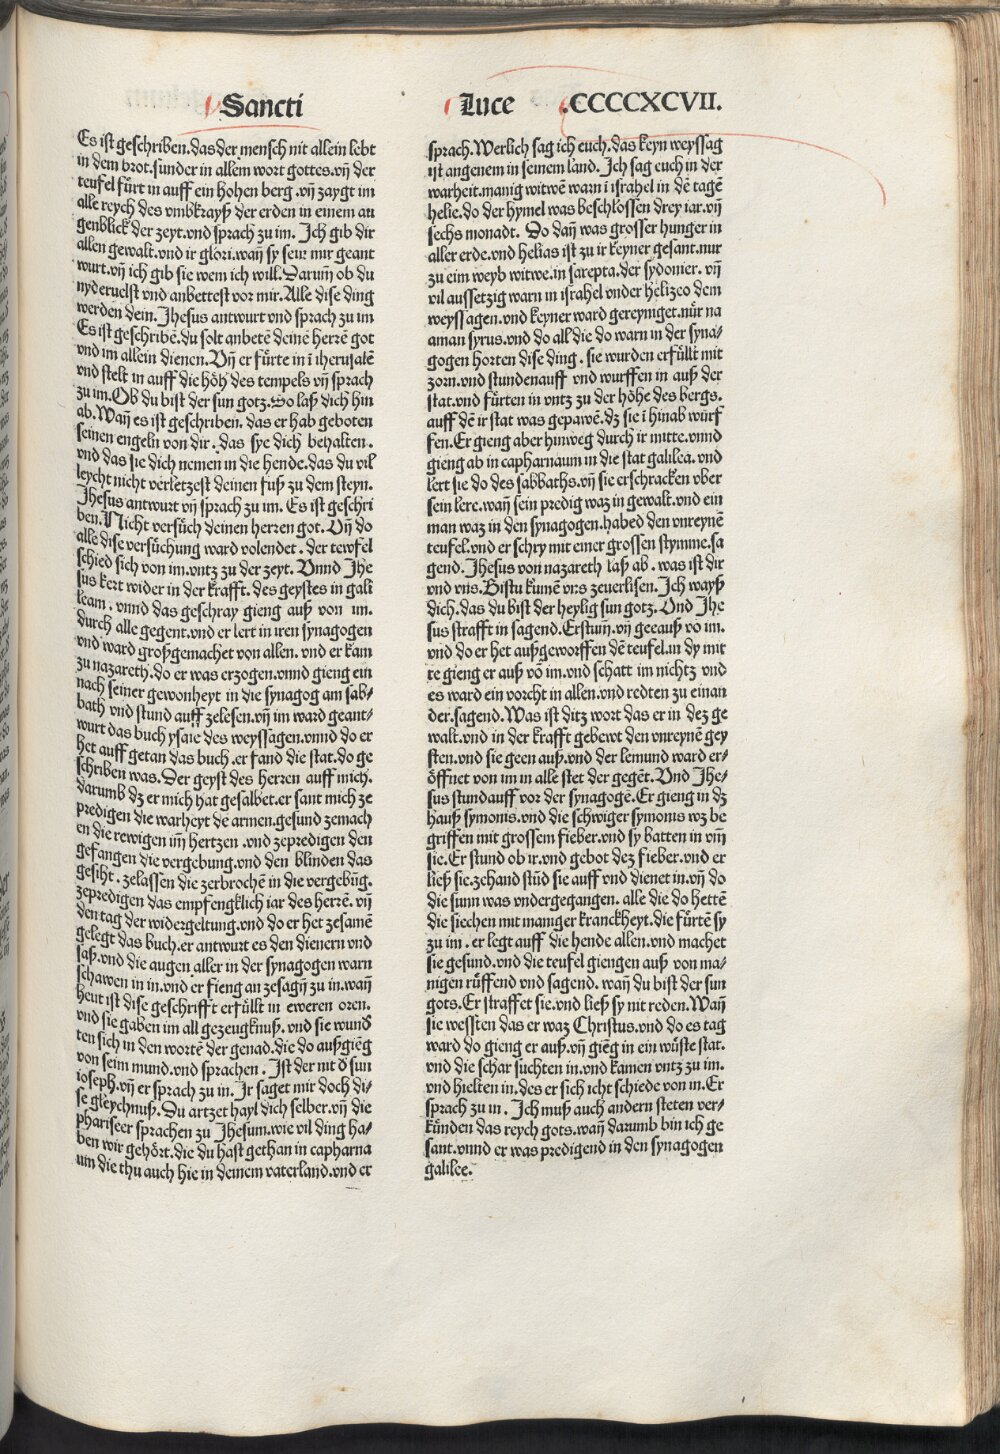 Sancti
Luce .CCCCXCVII.
Es ist geschriben.das der mensch nit allein lebt
in dem brot.sunder in allem wort gottes.vn̄ der
teufel fürt in auff ein hohen berg .vn̄ zaygt im
alle reych des vmbkrayß der erden in einem au
genblick der zeyt.vnd sprach zu im. Ich gib dir
allen gewalt.vnd ir glori.wañ sy sein mir geant
wurt.vn̄ ich gib sie wem ich will.Darum̄ ob du
nyderuelst vnd anbettest vor mir.Alle dise ding
werden dein.Jhesus antwurt vnd sprach zu im
Es ist geschribē.du solt anbetē deinē herrē got
vnd im allein dienen.Vn̄ er fürte in ī iherusalē
vnd stelt in auff die höh des tempels vn̄ sprach
zu im.Ob du bist der sun gotz.So laß dich hin
ab.Wañ es ist geschriben. das er hab geboten
seinen engeln von dir . das sye dich behalten.
vnd das sie dich nemen in die hende.das du vil
leycht nicht verletzest deinen fuß zu dem steyn.
Jhesus antwurt vn̄ sprach zu im. Es ist geschri
ben.Nicht versůch deinen herzen got. Vn̄ do
alle dise versůchung ward volendet . der tewfel
schied sich von im.vntz zu der zeyt. Vnnd Jhe
sus kert wider in der krafft. des geystes in gali
leam . vnnd das geschray gieng auß von im.
durch alle gegent.vnd er lert in iren synagogen
vnd ward großgemachet von allen. vnd er kam
zu nazareth.do er was erzogen.vnnd gieng ein
nach seiner gewonheyt in die synagog am sab⸗
bath vnd stund auff zelesen.vn̄ im ward geant⸗
wurt das buch ysaie des weyssagen.vnnd do er
het auff getan das buch .er fand die stat.do ge
schriben was. Der geyst des herzen auff mich.
darumb dz er mich hat gesalbet.er sant mich ze
predigen die warheyt dē armen.gesund zemach
en die rewigen im̄ hertzen .vnd zepredigen den
gefangen die vergebung.vnd den blinden das
gesiht . zelassen die zerbrochē in die vergebūg.
zepredigen das empfengklich iar des herrē. vn̄
den tag der widergeltung.vnd do er het zesamē
gelegt das buch.er antwurt es den dienern vnd
saß.vnd die augen aller in der synagogen warn
schawen in in.vnd er fieng an zesagn̄ zu in.wañ
heut ist dise geschrifft erfüllt in eweren oren.
vnd sie gaben im all gezeugknuß. vnd sie wund
ten sich in den wortē der genad.die do außgiēg
von seim mund.vnd sprachen . Ist der nit d sun
ioseph.vn̄ er sprach zu in. Jr saget mir doch di⸗
se gleychnuß. Du artzet hayl dich selber.vn̄ die
phariseer sprachen zu Jhesum.wie vil ding ha⸗
ben wir gehört.die du hast gethan in capharna
um die thu auch hie in deinem vaterland.vnd er
sprach.Werlich sag ich euch.das keyn weyssag
ist angenem in seinem land. Ich sag euch in der
warheit.manig witwē warn ī israhel in dē tagē
helie.do der hymel was beschlossen drey iar.vn̄
sechs monadt. Do dañ was grosser hunger in
aller erde.vnd helias ist zu ir keyner gesant.nur
zu eim weyb witwe.in sarepta.der sydonier. vn̄
vil aussetzig warn in israhel vnder helizeo dem
weyssagen.vnd keyner ward gereyniget.nür na
aman syrus.vnd do all die do warn in der syna⸗
gogen horten dise ding . sie wurden erfüllt mit
zorn.vnd stundenauff vnd wurffen in auß der
stat.vnd fürten in vntz zu der höhe des bergs.
auff dē ir stat was gepawē.dz sie ī hinab würf
fen.Er gieng aber hinweg durch ir mitte.vnnd
gieng ab in capharnaum in die stat galilea. vnd
lert sie do des sabbaths.vn̄ sie erschracken vber
sein lere.wañ sein predig waz in gewalt.vnd ein
man waz in den synagogen.habed den vnreynē
teufel.vnd er schry mit einer grossen stymme.sa
gend.Jhesus von nazareth laß ab . was ist dir
vnd vns.Bistu kumē vns zeuerlisen.Ich wayß
dich.das du bist der heylig sun gotz. Vnd Jhe
sus strafft in sagend.Erstum̄.vn̄ geeauß vō im.
vnd do er het außgeworffen dē teufel.in dy mit
te gieng er auß vō im.vnd schatt im nichtz vnd
es ward ein vorcht in allen.vnd redten zu einan
der.sagend.Was ist ditz wort das er in dez ge
walt.vnd in der krafft gebewt den vnreynē gey
sten.vnd sie geen auß.vnd der lemund ward er⸗
öffnet von im in alle stet der gegēt. Vnd Jhe⸗
sus stundauff vor der synagogē.Er gieng in dz
hauß symonis.vnd die schwiger symonis wz be
griffen mit grossem fieber.vnd sy batten in vm̄
sie.Er stund ob ir.vnd gebot dez fieber.vnd er
ließ sie.zehand stūd sie auff vnd dienet in.vn̄ do
die sunn was vndergegangen. alle die do hettē
die siechen mit maniger kranckheyt.die fürtē sy
zu im . er legt auff die hende allen.vnd machet
sie gesund.vnd die teufel giengen auß von ma⸗
nigen rüffend vnd sagend. wañ du bist der sun
gots.Er straffet sie.vnd ließ sy nit reden.Wañ
sie wessten das er waz Christus.vnd do es tag
ward do gieng er auß.vn̄ giēg in ein wüste stat.
vnd die schar suchten in.vnd kamen vntz zu im.
vnd hielten in.des er sich icht schiede von in.Er
sprach zu in . Ich muß auch andern steten ver⸗
künden das reych gots.wañ darumb bin ich ge
sant.vnnd er was predigend in den synagogen
galilee.